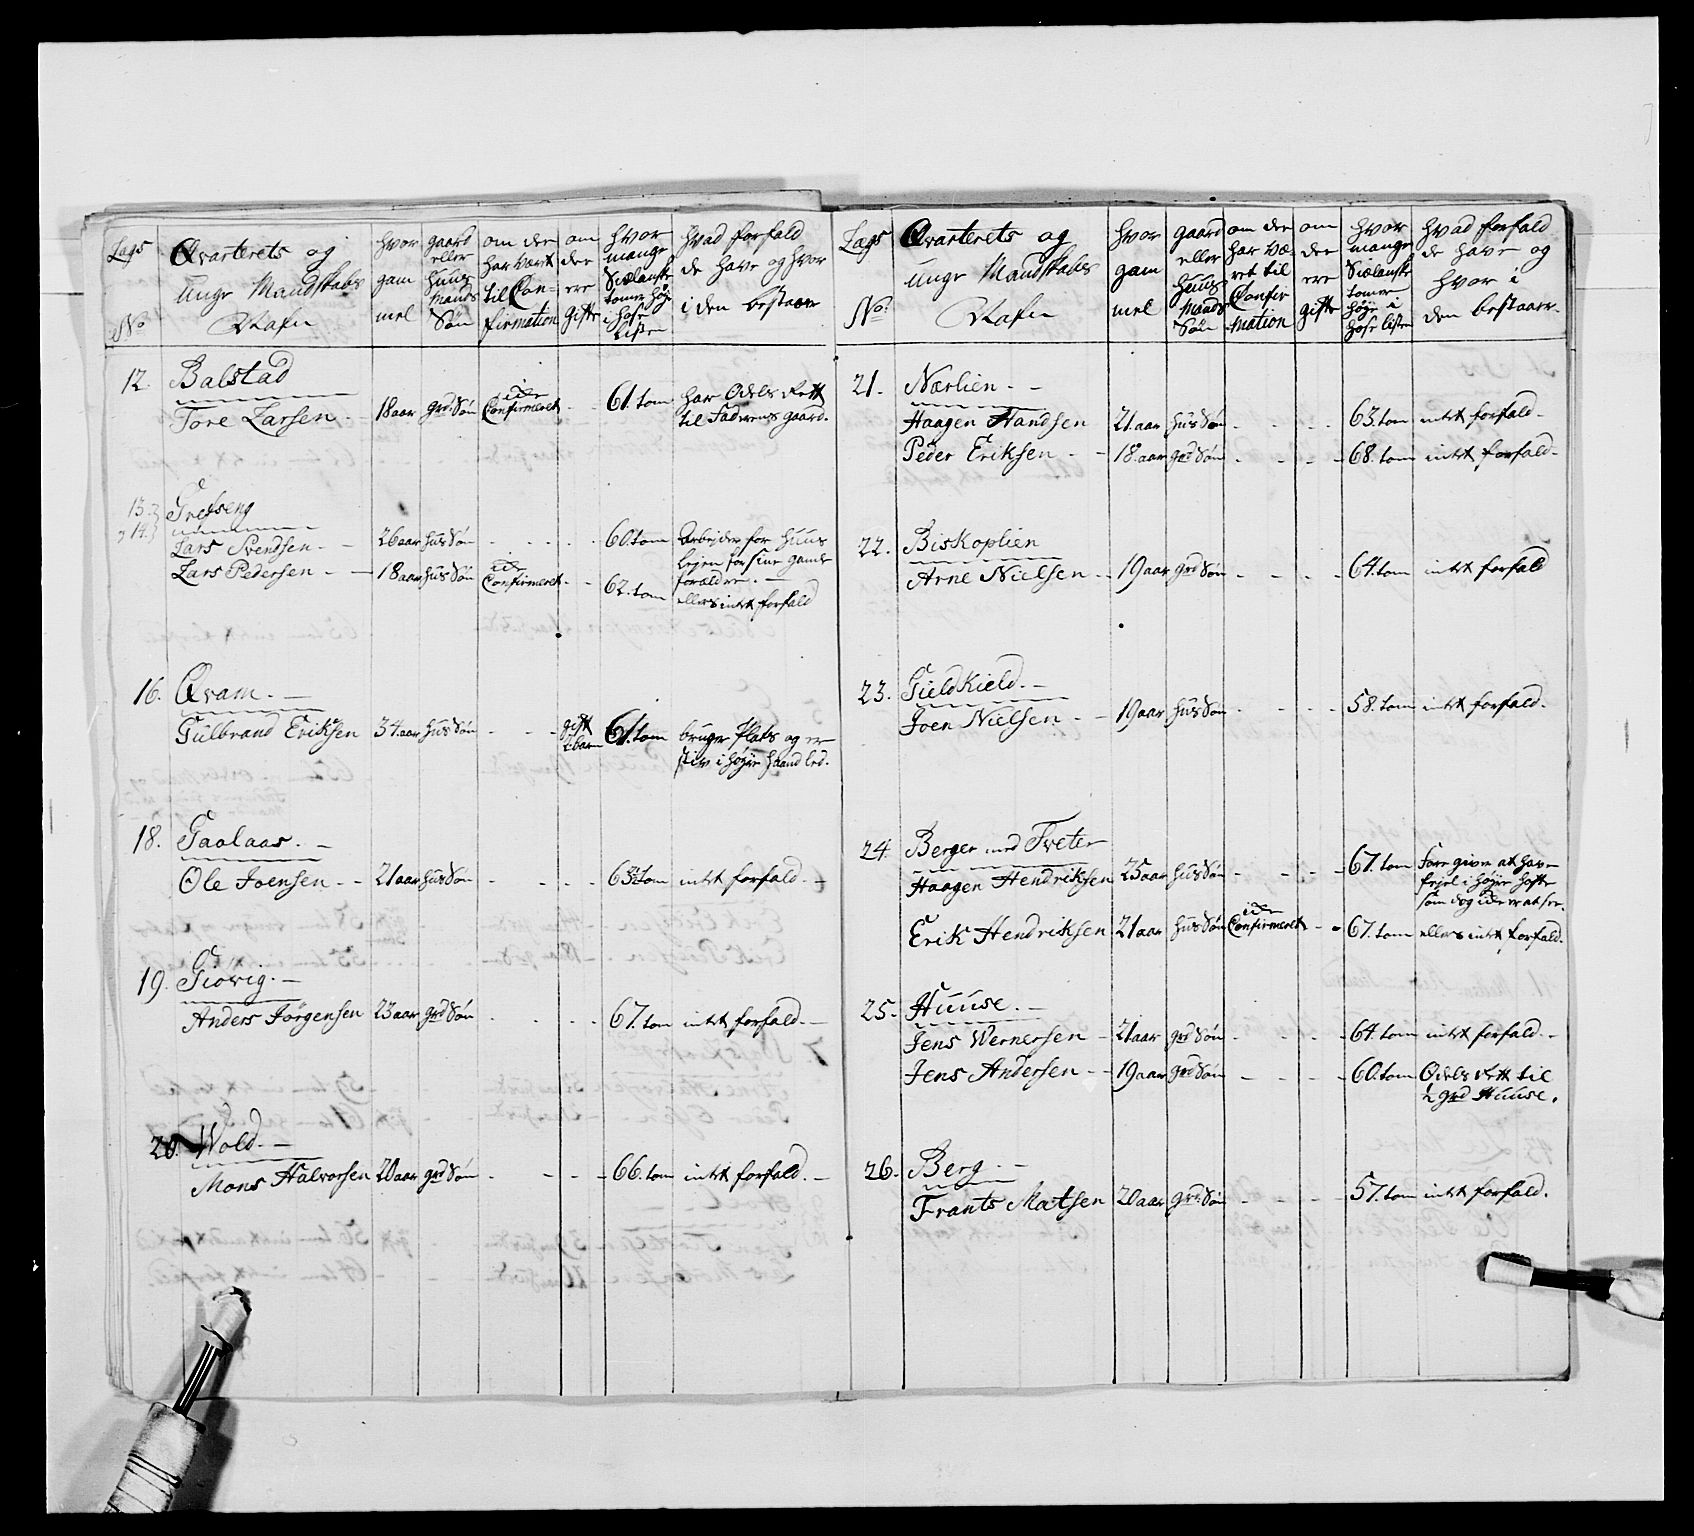 Lægs No
Qvarterets og Unge Mandskabs Nafn
hvor gam mel
gaard eller Huus Mands Søn
om der har været til Con- firmation
om der ere gifte
hvor mange Siælanske tomer høy i hose Lister
hvad forfald de have og hvor i den bestaaer
12. Balstad
Tore Larsen - 18 aar grd: Søn icke Confirmeret - - 61. tom har Odels Rett til Faderens gaard.
13. 14. Grefseng
Lars Svendsen - - 26 aar huus Søn - - - - 60. tom Arbejder for huus
Lejen for sine gamle forældre. -
Lars Pedersen - - 18 aar huus Søn icke Confirmeret - - 62. tom ellers intet forfald
16. Qvam. -
Gulbrand Eriksen 34. aar huus Søn - - - gift 2 barn 61. tom bruger Plads og er
stiv i høyre haand led.
18. Gaalaas. -
Ole Joensen - - 21 aar huus Søn - - - - 63 tom intet forfald. -
19. Giøvig. -
Anders Jørgensen 23 aar grd Søn - - - - 67. tom intet forfald. -
20. Wold. -
Mons Halvorsen 20 aar grd Søn - - - - 66. tom intet forfald. -
Lægs No:
Qvarterets og Unge Mandskabs Nafn
hvor gam mel
gaard eller Huus Mands Søn
om der har væ- ret til Confir mation
om der ere gifte
hvor mange Siælanske tomer høye i hose lister
hvad forfald de have og hvor i den bestaaer.
21. Nærlien. - -
Haagen Handsen 21. aar huus Søn - - - - 63. tom intet forfald -
Peder Eriksen - - 18. aar grd Søn - - - - 68. tom intet forfald -
22. Biskoplien
Arne Nielsen - - 19 aar grd Søn - - - - 64. tom intet forfald
23. Gieldkield. -
Joen Nielsen - - 19 aar huus Søn - - - - 58. tom intet forfald.
24. Berger med Tveter
Haagen Hendriksen 25 aar huus Søn - - - - 67. tom Foregiver at have
fejel i høyre hofte
som dog icke er at see.
Erik Hendriksen 21 aar huus Søn icke Confirmeret - - 67. tom ellers intet forfald.
25. Huuse. -
Jens Wernersen - 21 aar grd Søn - - - - 64. tom intet forfald. -
Jens Andersen - - 19 aar grd Søn - - - - 60. tom Odels rett til
½ grd Huuse.
26. Berg. -
Frants Matsen 20 aar grd: Søn - - - - 57. tom intet forfald.